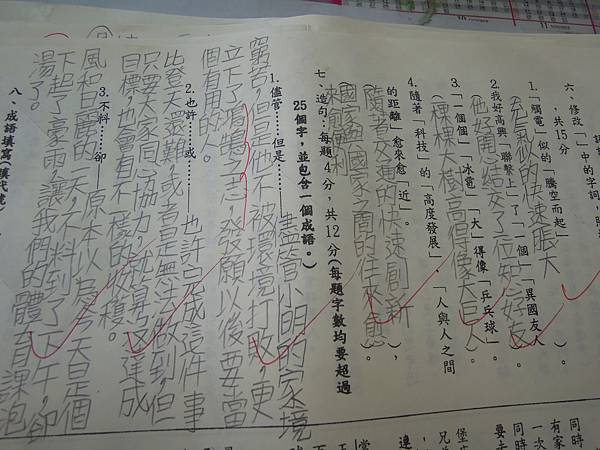 六、修改「」中的字詞,
,共15分
1.「觸電」似的騰空而起
(充氣似的快速脹大)。
2.我好高興「聯繫上」了「一個」「異國友人」
(他好開心結交了一位知心好友)。
3.「一個個」「冰雹」「大」得像「乒乓球」。
(一棵棵大樹高得像大巨人)。
4.隨著「科技」的「高度發展」,「人與人之間
的距離」愈來愈「近」。
(隨著交通的快速創新),
(國家與國家之間的往來愈
來愈便利)。
七、造句:每題4分,共12分(每題字數均要超過
25個字,並包含一個成語。)
1.儘管……但是…… 儘管小明的家境
窮苦,但是他不被環境打敗,更
立下了鴻鵠之志,發願以後要當
個有用的人。
2.也許……或…… 也許完成這件事
比登天還難,或者是無法做到,但
只要大家同心協力,就算沒達成
目標,也會有不一樣的收穫。
3.不料……卻…… 原本以為今天是個
風和日麗的一天,不料到了下午,卻
下起了豪雨,讓我們的體育課泡
湯了。
八、成語填寫